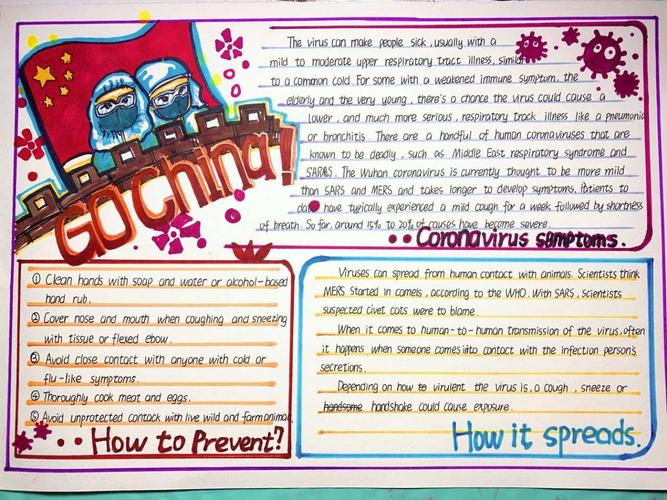 GO China!
The virus can make people sick, usually with a
mild to moderate upper respiratory tract illness, similar
to a common cold. For some with a weakened immune symptom, the
elderly and the very young, there's a chance the virus could cause a
lower, and much more serious, respiratory track illness like a pneumonia
or bronchitis. There are a handful of human coronaviruses that are
known to be deadly, such as Middle East respiratory syndrome and
SARS. The Wuhan coronavirus is currently thought to be more mild
than SARS and MERS and takes longer to develop symptoms. Patients to
date have typically experienced a mild cough for a week followed by shortness
of breath. So far, around 15% to 20% of causes have become severe.
Coronavirus symptoms.
① Clean hands with soap and water or alcohol-based
hand rub.
② Cover nose and mouth when coughing and sneezing
with tissue or flexed ebow.
③ Avoid close contact with anyone with cold or
flu-like symptoms.
④ Thoroughly cook meat and eggs.
⑤ Avoid unprotected contack with live wild and farm animal.
How to Prevent?
Viruses can spread from human contact with animals. Scientists think
MERS started in camels, according to the WHO. With SARS, scientists
suspected civet cats were to blame.
When it comes to human-to-human transmission of the virus, often
it happens when someone comes into contact with the infection person's
secretions.
Depending on how to virulent the virus is, a cough, sneeze or
handsome handshake could cause exposure.
How it spreads.